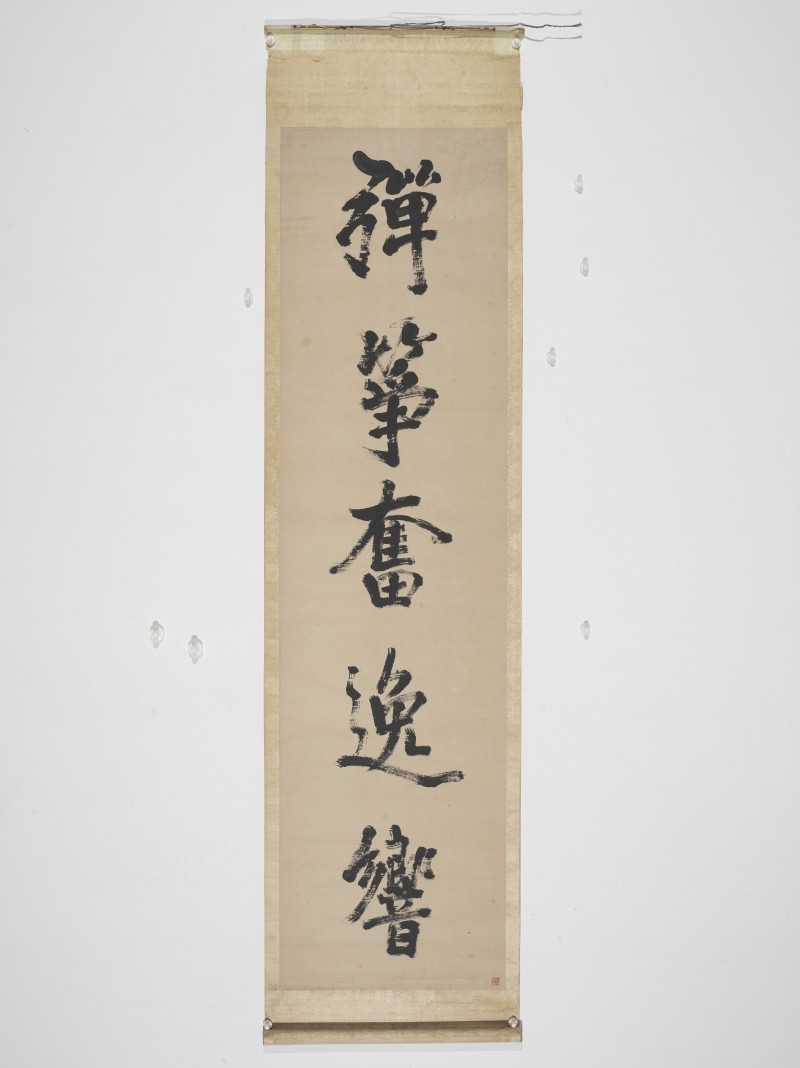 彈箏奮逸響